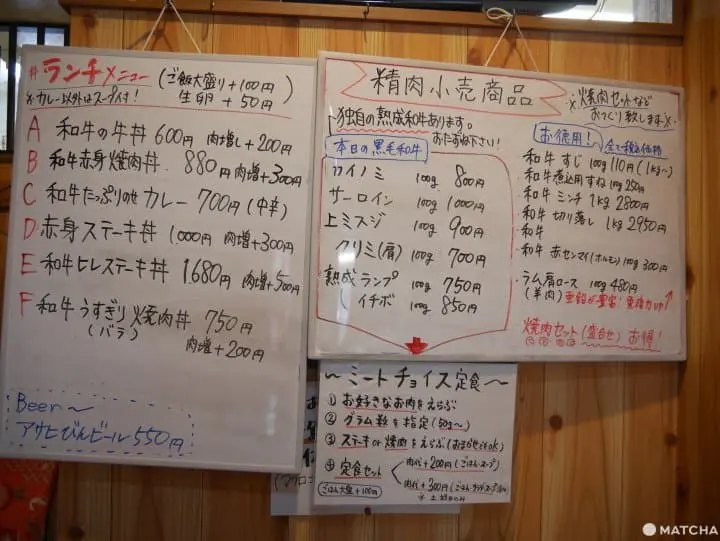 #ランチメニュー (ご飯大盛り+100円
生卵 +50円)
※カレー以外はスープ付!
A 和牛の牛丼 600円 肉増し+200円
B 和牛赤身焼肉丼. 880円 肉増+300円
C 和牛たっぷりのせ カレー 700円 (中辛)
D 赤身ステーキ丼 1,000円 肉増+300円
E 和牛ヒレステーキ丼 1680円 肉増+500円
F 和牛うすぎり焼肉丼 750円
(バラ) 肉増+200円
Beer~
アサヒびんビール 550円
精肉小売商品
独自の熟成和牛あります。
おたずね下さい!
本日の黒毛和牛
カイノミ 100g 800円
サーロイン 100g 1000円
上ミスジ 100g 900円
クリミ(肩) 100g 700円
熟成ランプ 100g 750円
イチボ 100g 850円
※焼肉セットなど
おつくり致します※
お徳用! 全て税込価格
和牛 すじ 100g 110円 (1kg~)
和牛煮込用すね 100g 250円
和牛 ミンチ 1kg 2800円
和牛 切り落し 1kg 2950円
和牛
和牛 赤センマイ(ホルモン) 100g 300円
・ラム肩ロース 100g 480円
(羊肉) 亜鉛が豊富! 免疫力UP↑
焼肉セット(盛合せ) お得!
~ミートチョイス定食~
① お好きなお肉をえらぶ
② グラム数を指定(50g~)
③ ステーキor焼肉をえらぶ(おまかせもOK)
④ 定食セット
肉代+200円(ごはん・スープ)
肉代+300円(ごはん・サラダ・スープ
ごはん大盛+100円